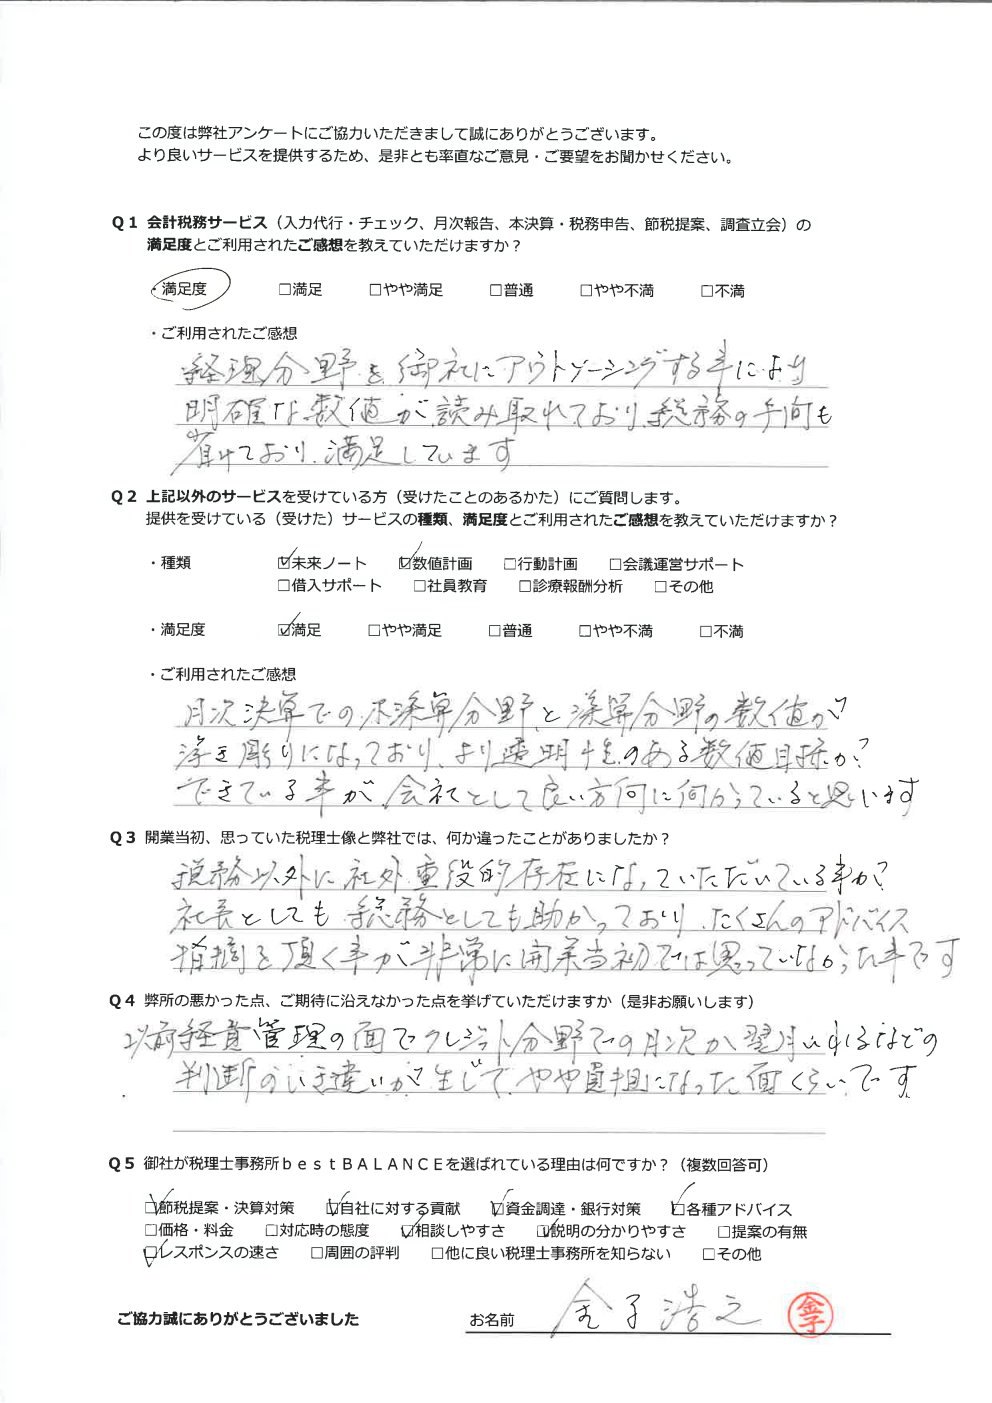 この度は弊社アンケートにご協力いただきまして誠にありがとうございます。
より良いサービスを提供するため、是非とも率直なご意見・ご要望をお聞かせください。
Q1 会計税務サービス（入力代行・チェック、月次報告、本決算・税務申告、節税提案、調査立会）の
満足度とご利用されたご感想を教えていただけますか？
・満足度 □満足 □やや満足 □普通 □やや不満 □不満
・ご利用されたご感想
経理分野を御社にアウトソーシングする事により
明確な数値が読み取れており、総務の手間も
省けており、満足しています
Q2 上記以外のサービスを受けている方（受けたことのあるかた）にご質問します。
提供を受けている（受けた）サービスの種類、満足度とご利用されたご感想を教えていただけますか？
・種類 ☑未来ノート ☑数値計画 □行動計画 □会議運営サポート
□借入サポート □社員教育 □診療報酬分析 □その他
・満足度 ☑満足 □やや満足 □普通 □やや不満 □不満
・ご利用されたご感想
月次決算での不採算分野と採算分野の数値が
浮き彫りになっており、より透明性のある数値目標が
できている事が会社として良い方向に向かっていると思います
Q3 開業当初、思っていた税理士像と弊社では、何か違ったことがありましたか？
税務以外に社外重役的存在になっていただいている事が
社長としても総務としても助かっており、たくさんのアドバイス
指摘を頂く事が非常に開業当初では思っていなかった事です
Q4 弊所の悪かった点、ご期待に沿えなかった点を挙げていただけますか（是非お願いします）
以前経費管理の面でクレジット分野での月次か翌月いれるなどの
判断のいき違いが生じて、やや負担になった面くらいです。
Q5 御社が税理士事務所ｂｅｓｔＢＡＬＡＮＣＥを選ばれている理由は何ですか？（複数回答可）
☑節税提案・決算対策 ☑自社に対する貢献 ☑資金調達・銀行対策 ☑各種アドバイス
□価格・料金 □対応時の態度 ☑相談しやすさ ☑説明の分かりやすさ □提案の有無
☑レスポンスの速さ □周囲の評判 □他に良い税理士事務所を知らない □その他
ご協力誠にありがとうございました お名前 金子浩之 金子